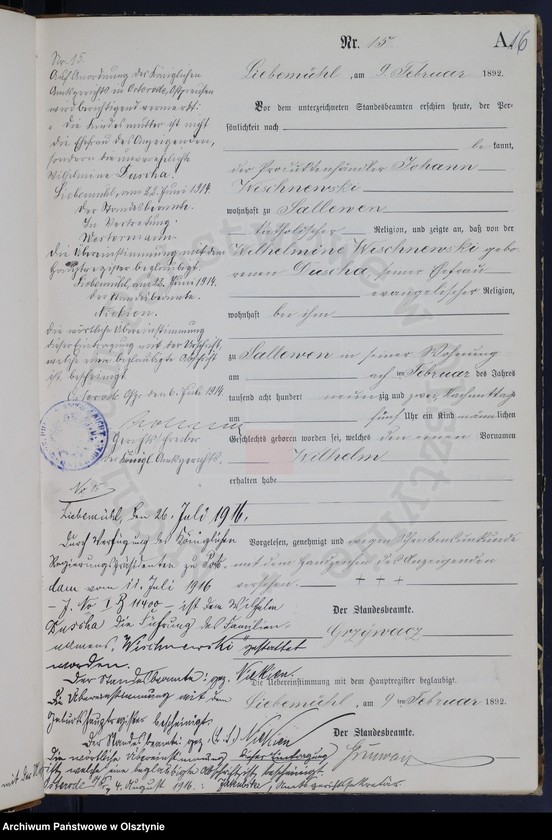 Nr. 15.
A. 16
Liebemühl, am 9. Februar 1892.
Vor dem unterzeichneten Standesbeamten erschien heute, der Per-
sönlichkeit nach
be kannt,
der Produktenhändler Johann
Wischnewski
wohnhaft zu Sallewen
katholischer Religion, und zeigte an, daß von der
Wilhelmine Wischnewski gebo-
renen Duscha, seiner Ehefrau
evangelischer Religion,
wohnhaft bei ihm
zu Sallewen in seiner Wohnung
am acht ten Februar des Jahres
tausend acht hundert neunzig und zwei Nachmittags
um fünf Uhr ein Kind männlichen
Geschlechts geboren worden sei, welches den einen Vornamen
Wilhelm
erhalten habe
Vorgelesen, genehmigt und wegen Schreibensunkunde
mit dem Handzeichen des Anzeigenden
versehen. + + +
Der Standesbeamte.
Grzywacz
Die Uebereinstimmung mit dem Hauptregister beglaubigt.
Liebemühl, am 9ten Februar 1892.
Der Standesbeamte.
Nr. 15.
Auf Anordnung des Königlichen
Amtsgerichts in Osterode, Ostpreußen
wird berichtigend vermerkt:
die Kindesmutter ist nicht
die Ehefrau des Anzeigenden,
sondern die unverehelichte
Wilhelmine Duscha.
Liebemühl, am 22. Juni 1914.
Der Standesbeamte.
In Vertretung:
Westermann.
Die Übereinstimmung mit dem
Hauptregister beglaubigt.
Liebemühl, am 22. Juni 1914.
Der Standesbeamte.
Die wörtliche Übereinstimmung
dieser Eintragung mit der Urschrift,
welche eine beglaubigte Abschrift
ist, bescheinigt
Osterode Ostpr. den 6. Juli 1914.
Gerichtsschreiber
des Königl. Amtsgerichts.
No 15
Liebemühl, den 26. Juli 1916.
Durch Verfügung des Königlichen
Regierungspräsidenten zu
vom 11. Juli 1916
- J. No I 11400 - ist dem Wilhelm
die Führung des Familien-
namens "Wischnewski" gestattet
worden.
Der Standesbeamte: gez.
Die Übereinstimmung mit dem
Geburtshauptregister bescheinigt
Der Standesbeamte gez. (L.S.)
Die wörtliche Übereinstimmung dieser Eintragung
mit der Urschrift, welche eine beglaubigte Abschrift ist, bescheinigt
Osterode, 4. August 1916.: Amtsgerichtssekretär.
Archiwum Państwowe w Olsztynie